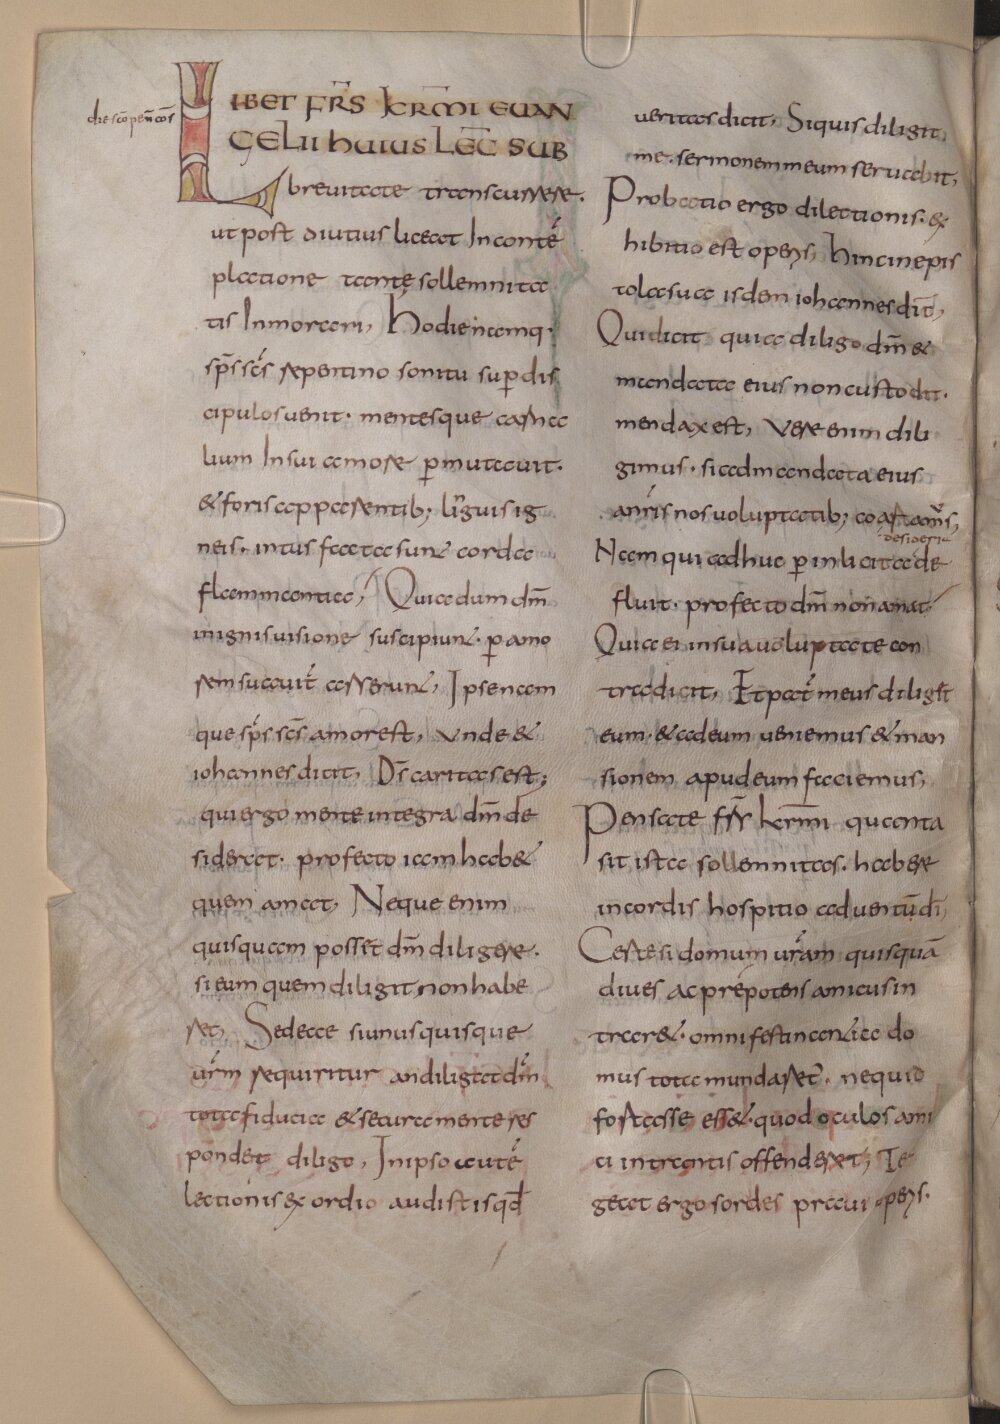 die sco penteco͞s
LIBET FR͞S K͞RMI EVAN
GELII HUIUS LEC͞ SUB
breuitate transcurrere.
ut post diutius liceat In conte͛
platione tantę sollemnita
tis Inmorari, Hodie namq·
sp͞s sc͞s repentino sonitu sup dis
cipulos uenit· mentesque carna
lium In sui amore p mutauit·
& foris apparentib; linguis ig
neis· intus facta sunt corda
flammantia, Quia dum dm̄
in ignis uisione susciperunt· p amo
rem suauit͛ arserunt, Ipse nam
que sp͞s sc͞s amor est, Vnde &
iohannes dicit, D͞s caritas est;
qui ergo mente integra dm̄ de
siderat· profecto iam hab&
quem amat, Neque enim
quisquam posset dm̄ diligere·
si eum quem diligit, non habe
ret, Sed ecce si unus quisque
ur͞m requiritur an diligat dm̄
tota fiducia & secura mente res
pondet diligo, In ipso aute͛
lectionis exordio audistis q͞d
ueritas dicit, Siquis diligit
me· sermonem meum seruabit,
Probatio ergo dilectionis· ex
hibitio est operis, Hinc in epis
tola sua isdem iohannes di͞t,
Qui dicit quia diligo dm̄ &
mandata eius non custodit·
mendax est, Vere enim dili
gimus· si ad mandata eius
a nr͞is nos uoluptatib; coartamus,
desideria
Nam qui adhuc p inlicita de
fluit· profecto dm̄ non amat
Quia ei in sua uoluptate con
tradicit, Et pat͛ meus diliget
eum· & ad eum ueniemus & man
sionem apud eum faciemus,
Pensate fr͞s k͞rmi quanta
sit ista sollemnitas· habere
in cordis hospitio aduentū d͞i,
Certe si domum ur͞am quisquā
diues ac prepotens amicus in
trar&· omni festinantia do
mus tota mundaret͛· ne quid
fortasse ess&· quod oculos ami
ci intrantis offenderet; Te
gat ergo sordes praui operis·